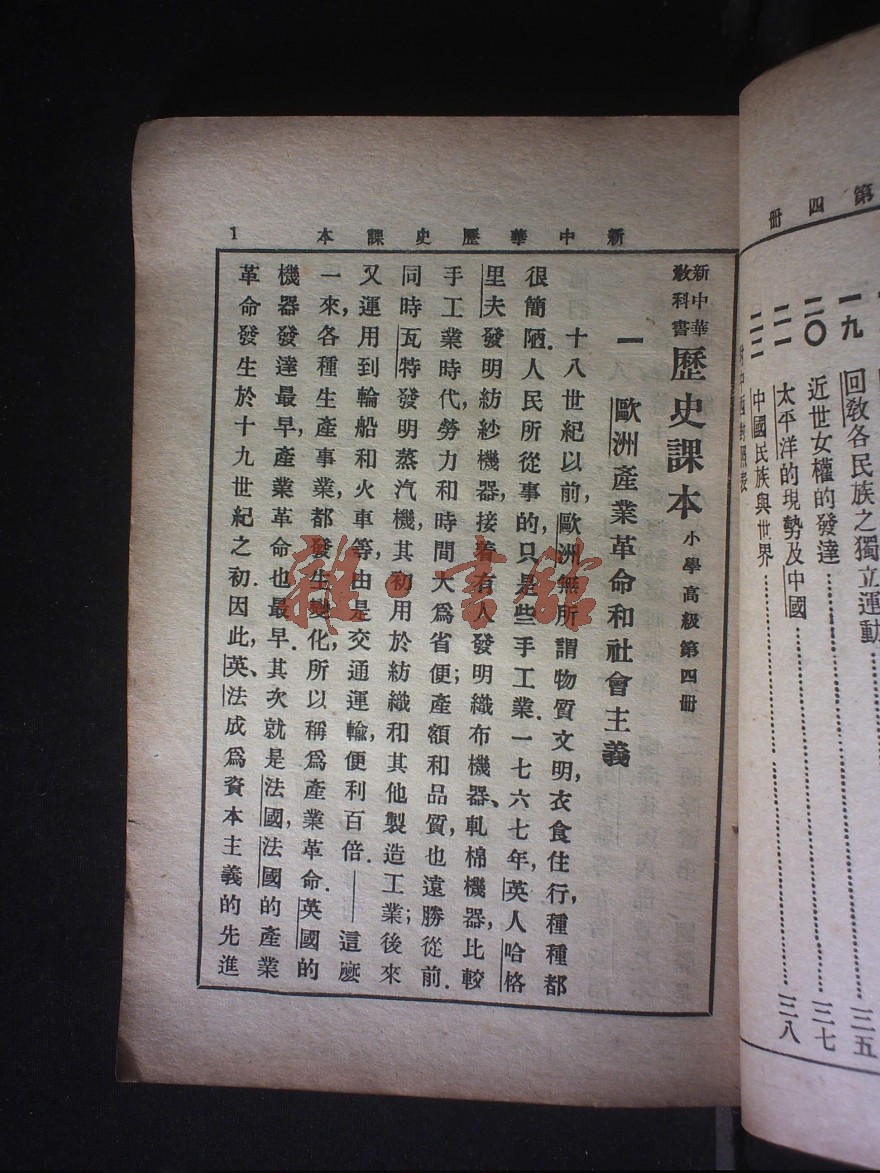 第四冊
一九 回敎各民族之獨立運動……三五
二〇 近世女權的發達……三七
二一 太平洋的現勢及中國……三八
二二 中國民族與世界
新中華歷史課本 1
新中華敎科書 歷史課本 小學高級第四冊
一 歐洲產業革命和社會主義
十八世紀以前,歐洲無所謂物質文明,衣食住行,種種都
很簡陋.人民所從事的,只是些手工業.一七六七年,英人哈格
里夫發明紡紗機器,接着有人發明織布機器、軋棉機器,比較
手工業時代,勞力和時間大爲省便;產額和品質,也遠勝從前.
同時瓦特發明蒸汽機,其初用於紡織和其他製造工業;後來
又運用到輪船和火車等,由是交通運輸,便利百倍.——這麽
一來,各種生產事業,都發生變化,所以稱爲產業革命.英國的
機器發達最早,產業革命也最早.其次就是法國,法國的產業
革命發生於十九世紀之初.因此,英、法成爲資本主義的先進
雜·書館